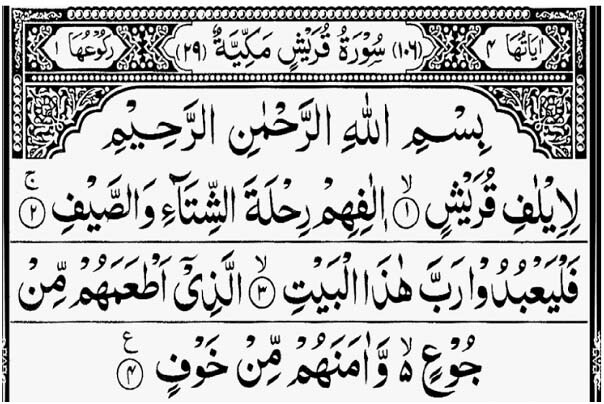 اٰيَاتُهَا ٤ (١٠٦) سُوْرَةُ قُرَيْشٍ مَكِّيَّةٌ (٢٩) رُكُوْعُهَا ١
بِسْمِ اللّٰهِ الرَّحْمٰنِ الرَّحِيْمِ
لِاِيْلٰفِ قُرَيْشٍ ۙ﴿١﴾ اٖلٰفِهِمْ رِحْلَةَ الشِّتَآءِ وَالصَّيْفِ ۚ﴿٢﴾
فَلْيَعْبُدُوْا رَبَّ هٰذَا الْبَيْتِ ۙ﴿٣﴾ الَّذِيْٓ اَطْعَمَهُمْ مِّنْ
جُوْعٍ ۙ۬ وَّاٰمَنَهُمْ مِّنْ خَوْفٍ ﴿٤﴾ ع